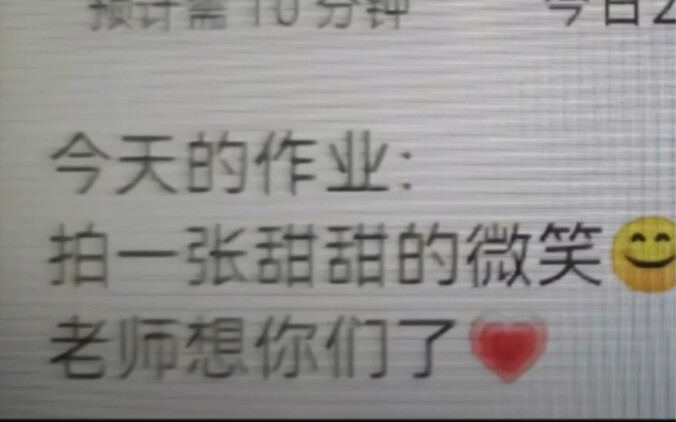 预计需 10 分钟 今日2
今天的作业:
拍一张甜甜的微笑😊
老师想你们了💗